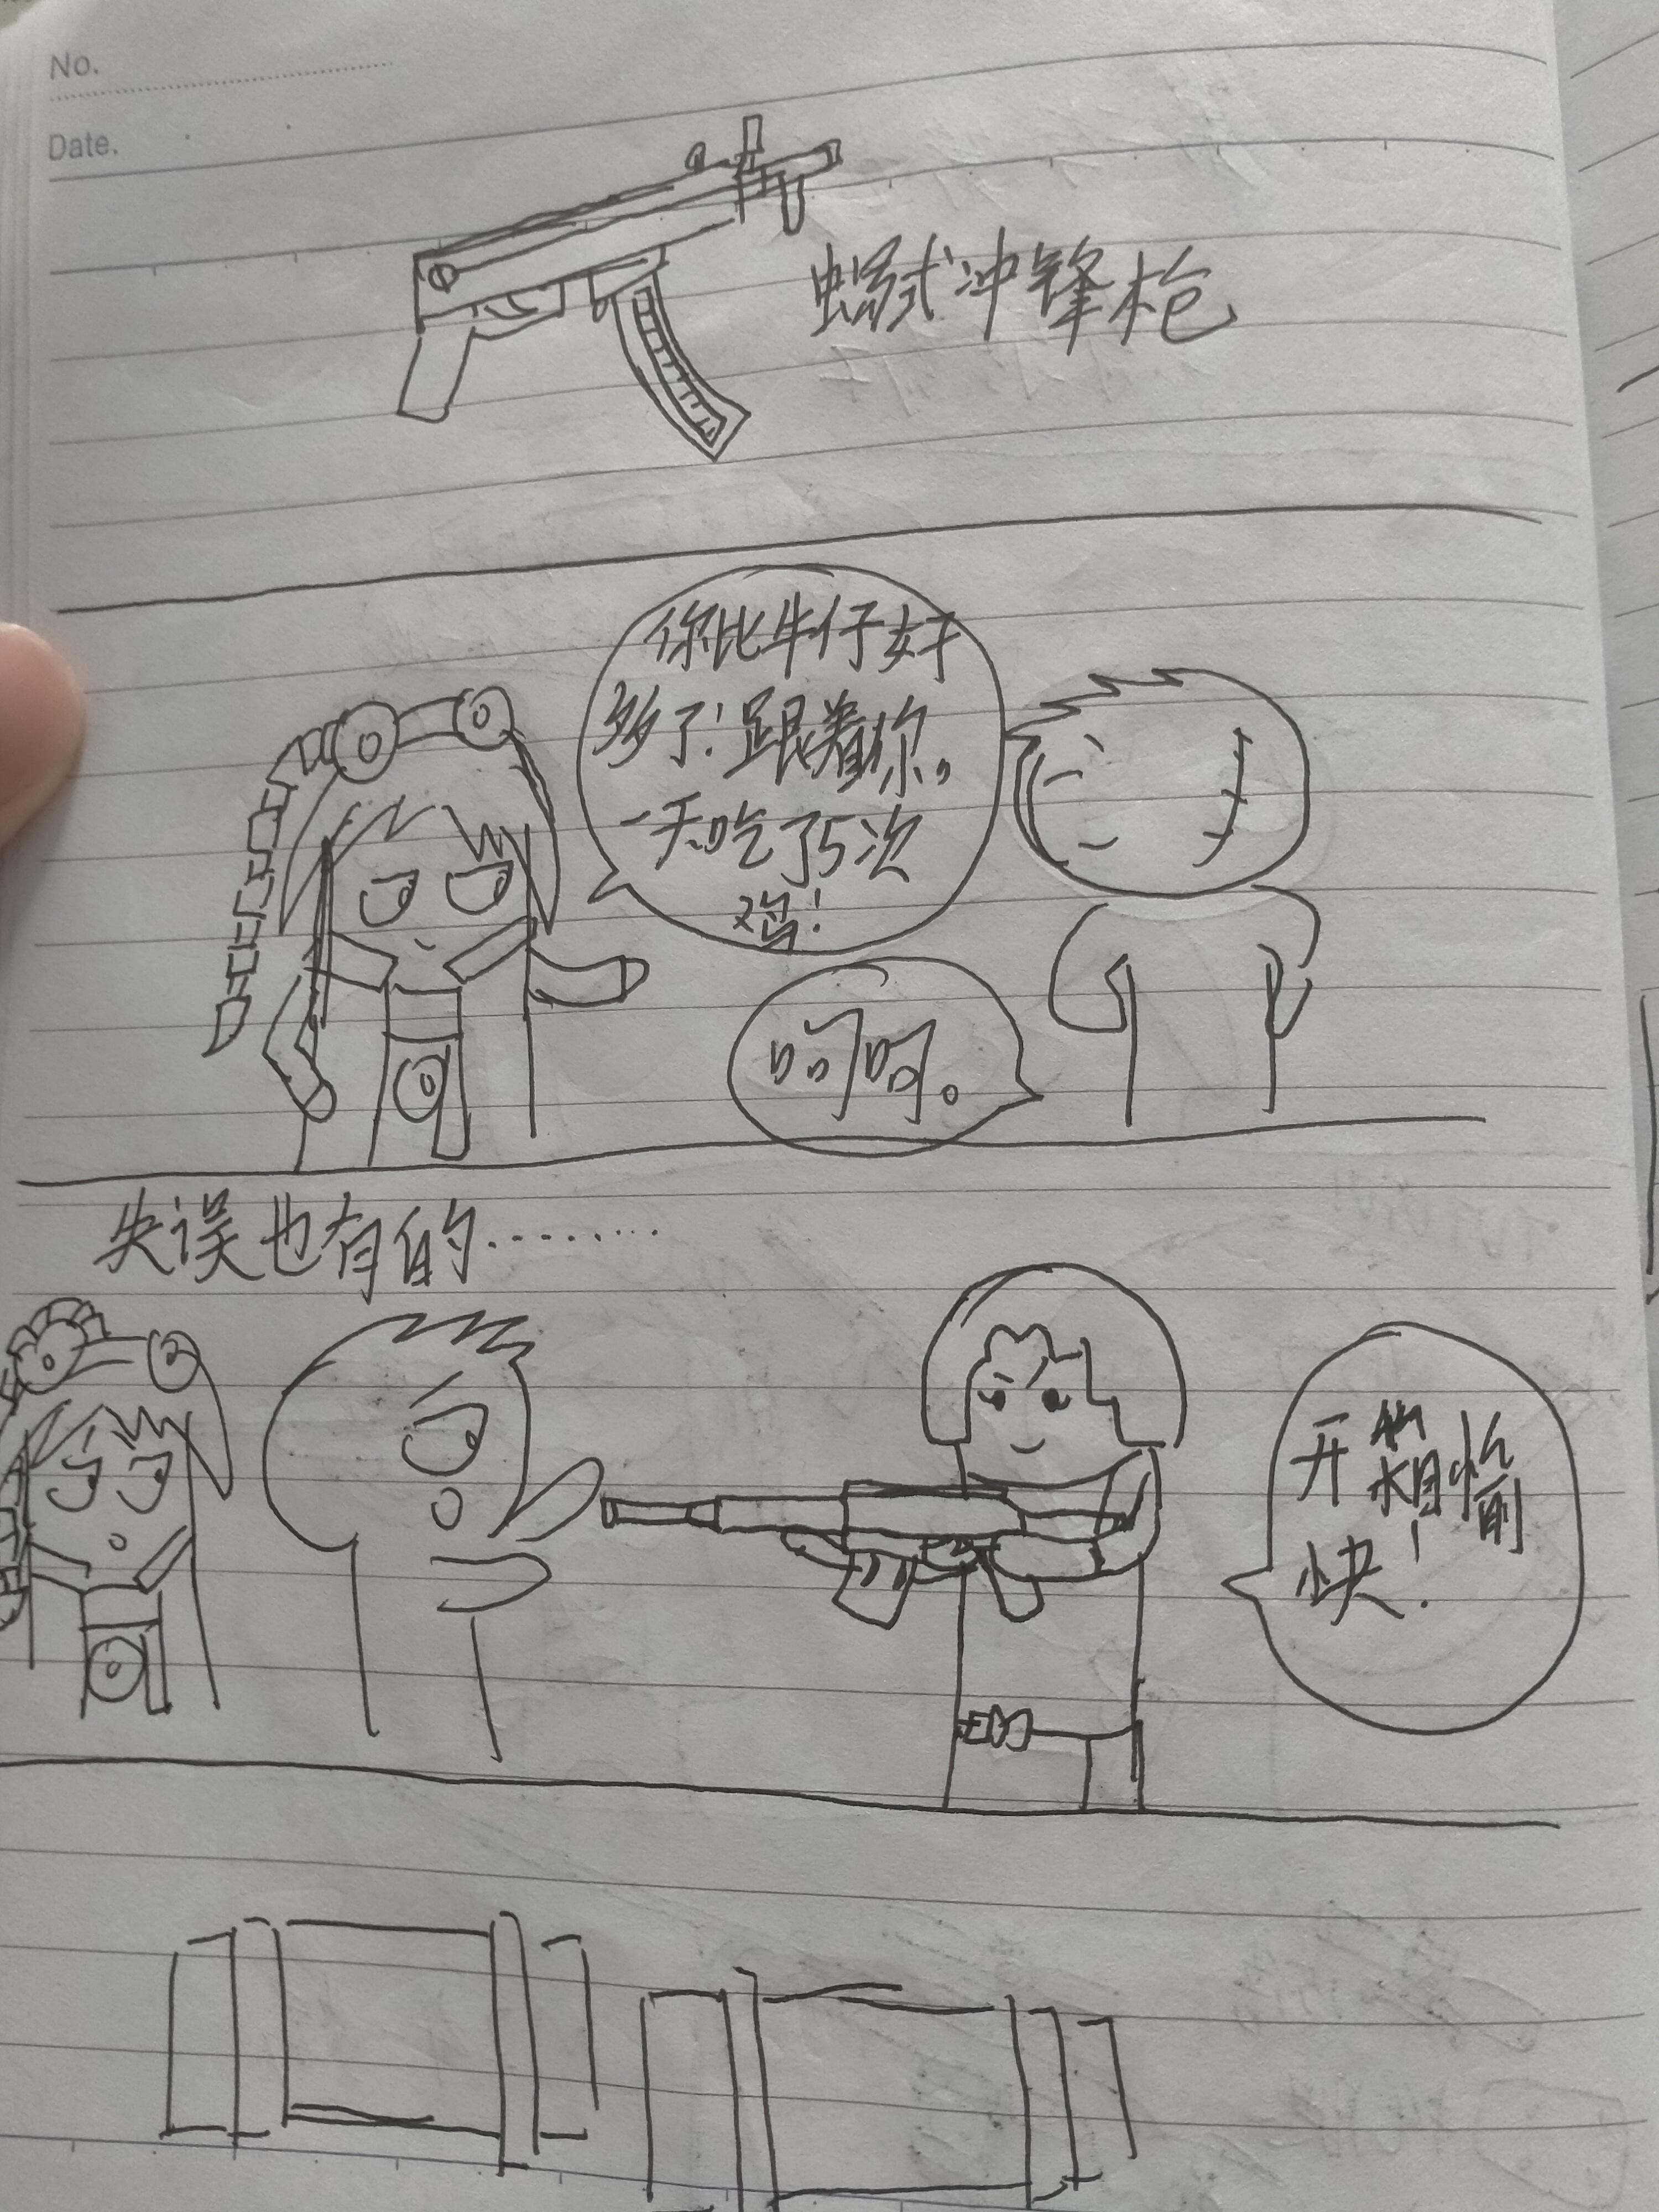 No.
Date.
蝎式冲锋枪
你比牛仔好
多了!跟着你,
一天吃了5次
鸡!
呵呵。
失误也有的………
开箱愉
快!